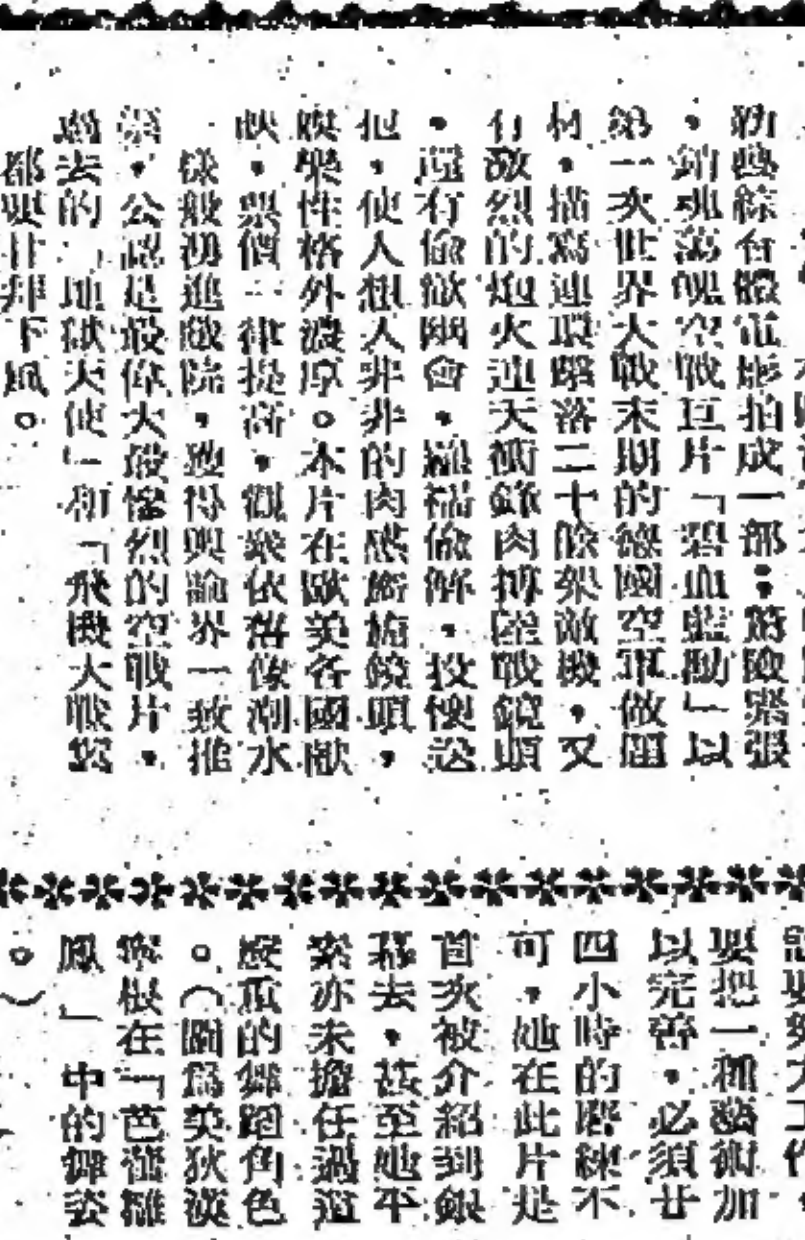 藝綜合體電影拍成一部：驚險緊張
，銷魂蕩魄空戰巨片「碧血藍勳」以
第一次世界大戰末期的德國空軍做題
材，描寫連環擊落二十餘架敵機，又
有激烈的炮火連天衝鋒肉搏陸戰鏡頭
，還有偷歡幽會，羅襦偷解，投懷送
抱，使人想入非非的肉感旖旎鏡頭，
娛樂性格外濃厚。本片在歐美各國獻
映，票價一律提高，觀衆依舊像潮水
樣般湧進戲院，致得輿論界一致推
崇，公認是最偉大最慘烈的空戰片。
過去的「地獄天使」和「飛機大戰
都要甘拜下風。
要把一種藝術加
以完善，必須廿
四小時的磨練不
可，她在此片是
首次被介紹到銀
幕去，甚至她平
素亦未擔任過這
嚴重的舞蹈角色
。（圖爲美狄
根在「芭蕾
鳳」中的舞姿
。）